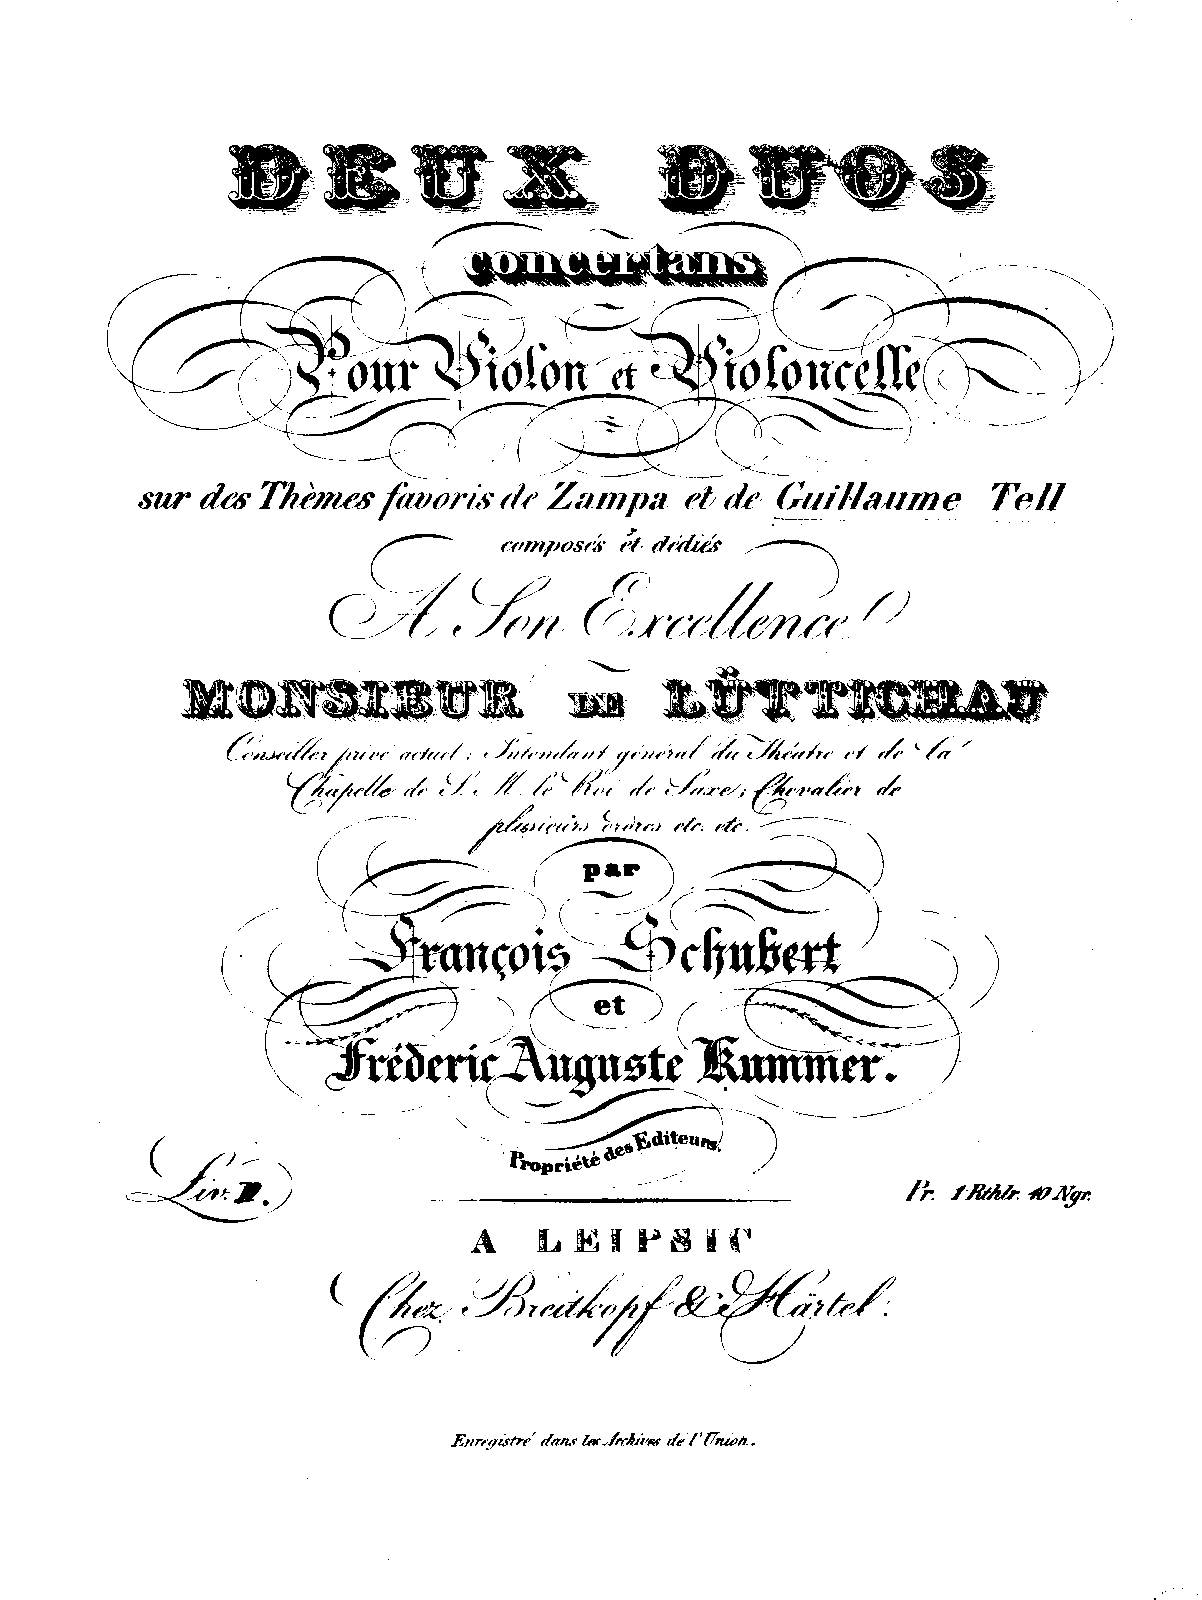 DEUX DUOS
concertans
Pour Violon et Violoncelle
sur des Thèmes favoris de Zampa et de Guillaume Tell
composés et dédiés
A Son Excellence
MONSIEUR DE LÜTTICHAU
Conseiller privé actuel; Intendant général du Théatre et de la
Chapelle de S. M. le Roi de Saxe; Chevalier de
plusieurs ordres etc. etc.
par
François Schubert
et
Fréderic Auguste Kummer.
Propriété des Editeurs.
Liv. II.
Pr. 1 Rthlr. 10 Ngr.
A LEIPSIC
Chez Breitkopf & Härtel.
Enregistré dans les Archives de l'Union.